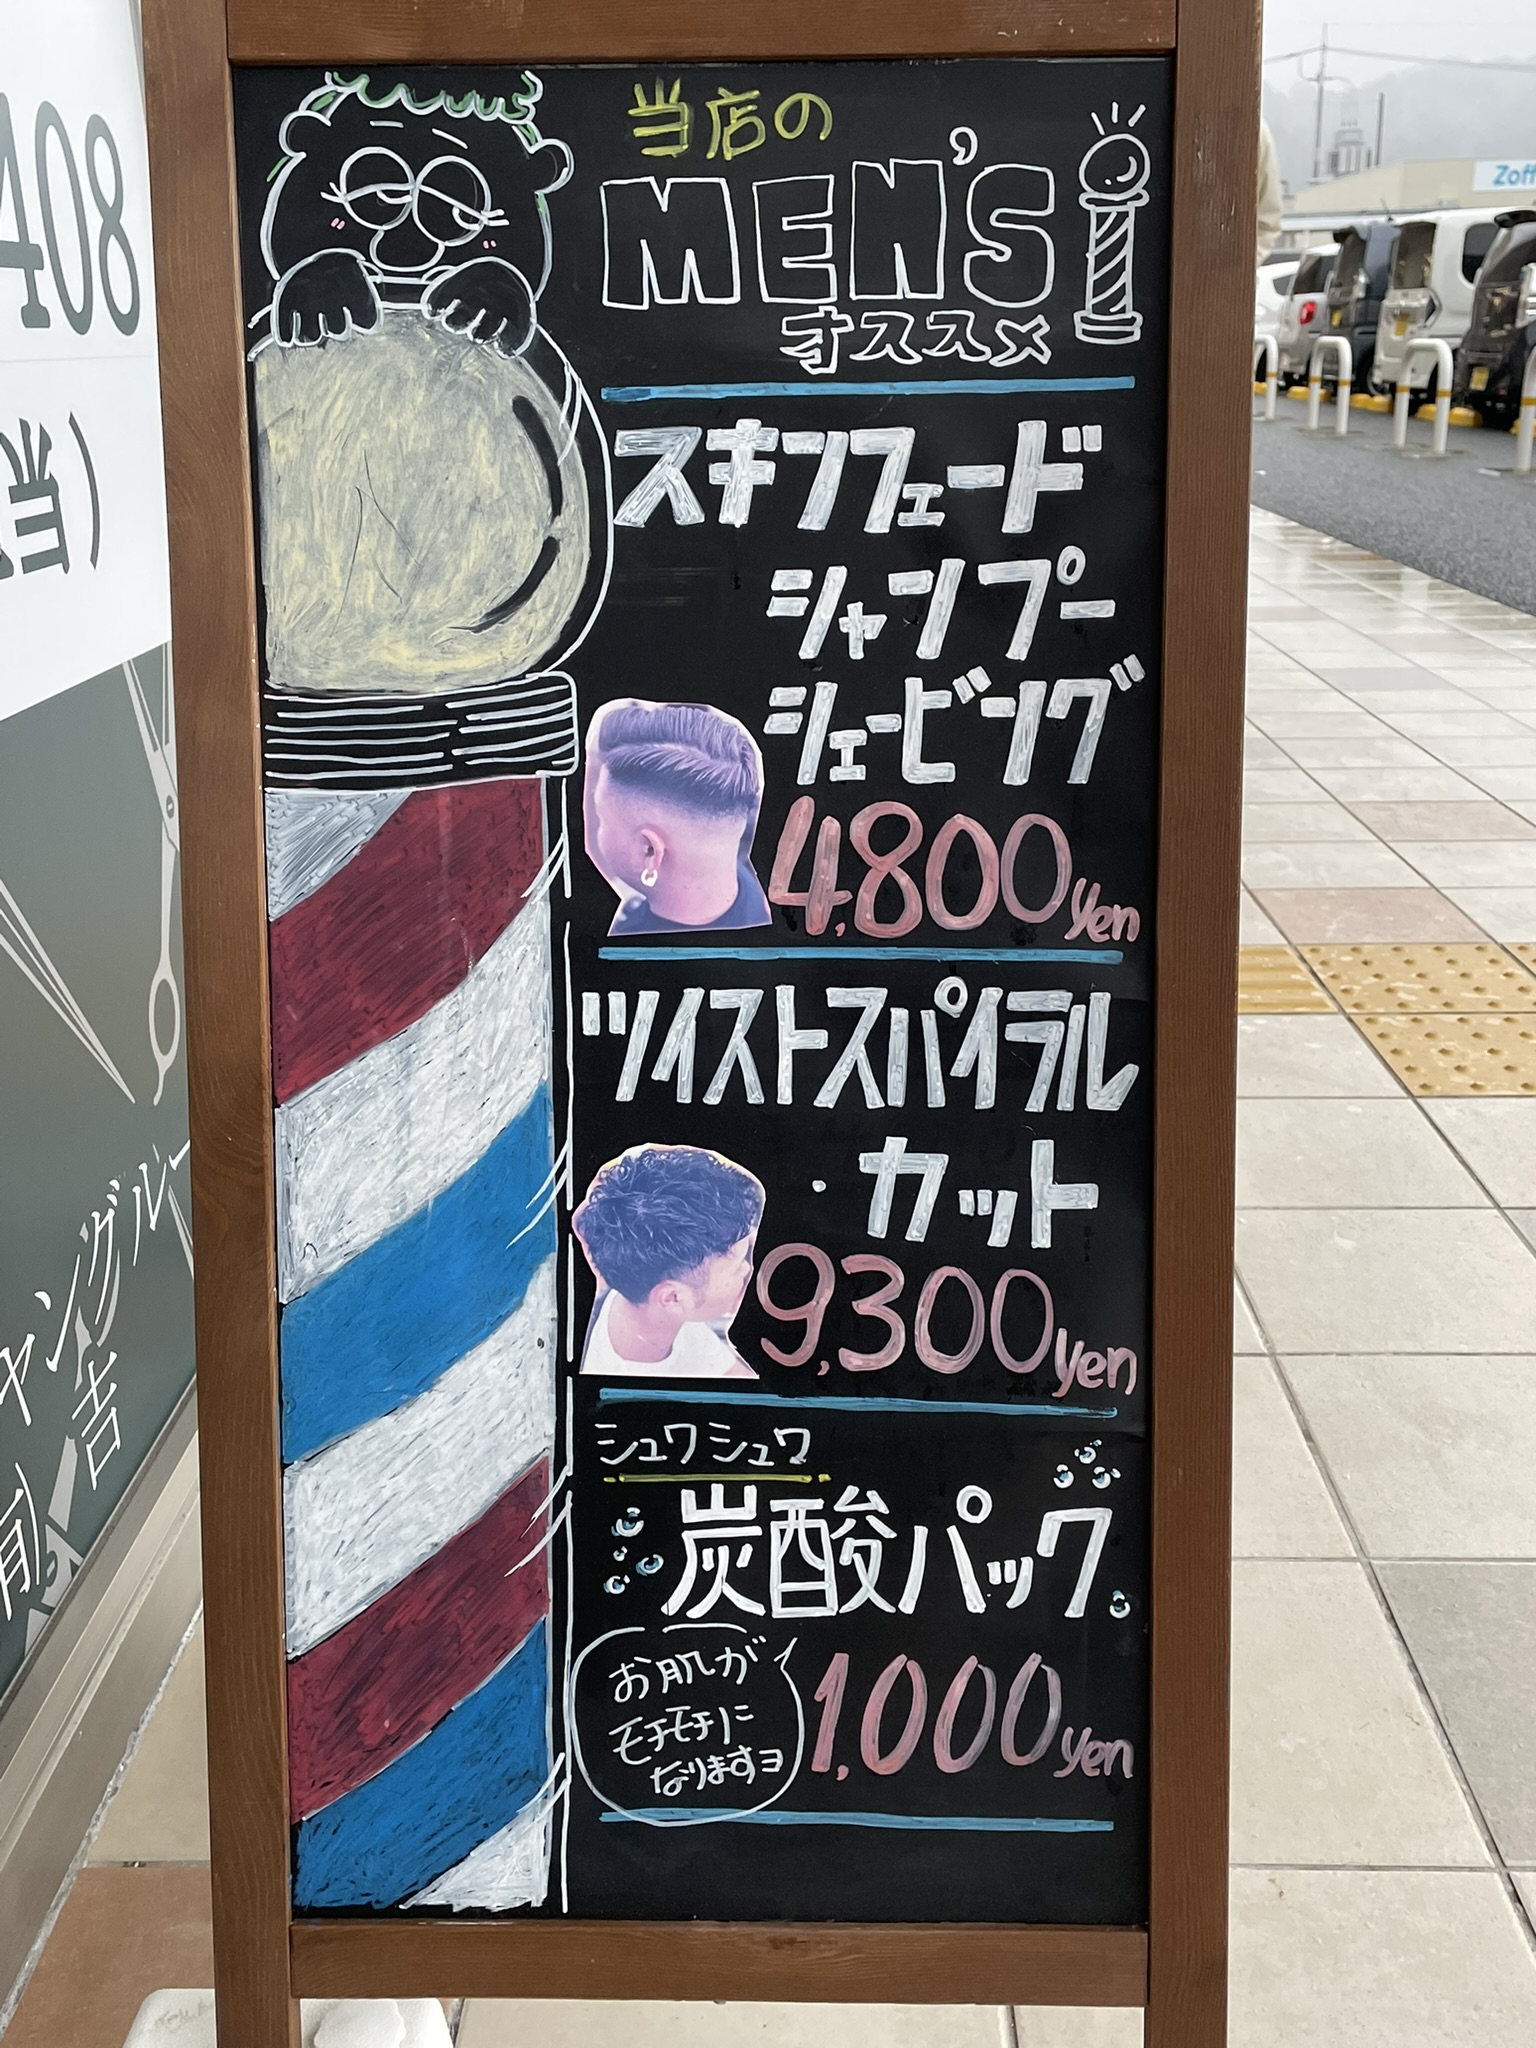 当店の
MEN'S
オススメ
スキンフェード
シャンプー
シェービング
4,800yen
ツイストスパイラル
・カット
9,300yen
シュワシュワ
炭酸パック
お肌が
モチモチに
なりますヨ
1,000yen
408
Zoff